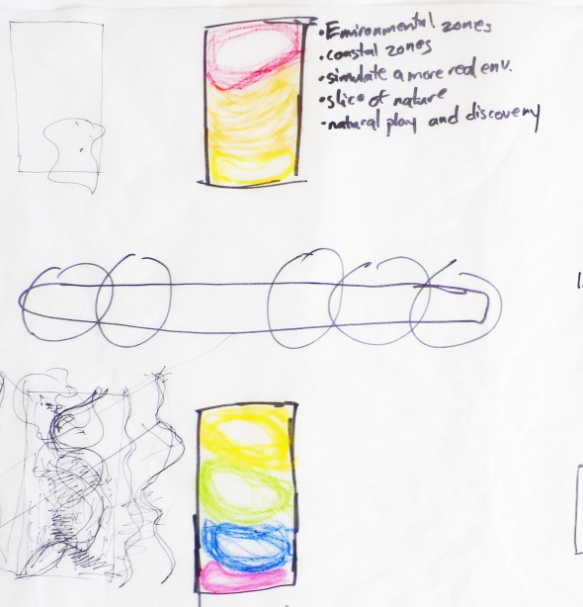 • Environmental zones
• coastal zones
• simulate a more real env.
• slice of nature
• natural play and discovery